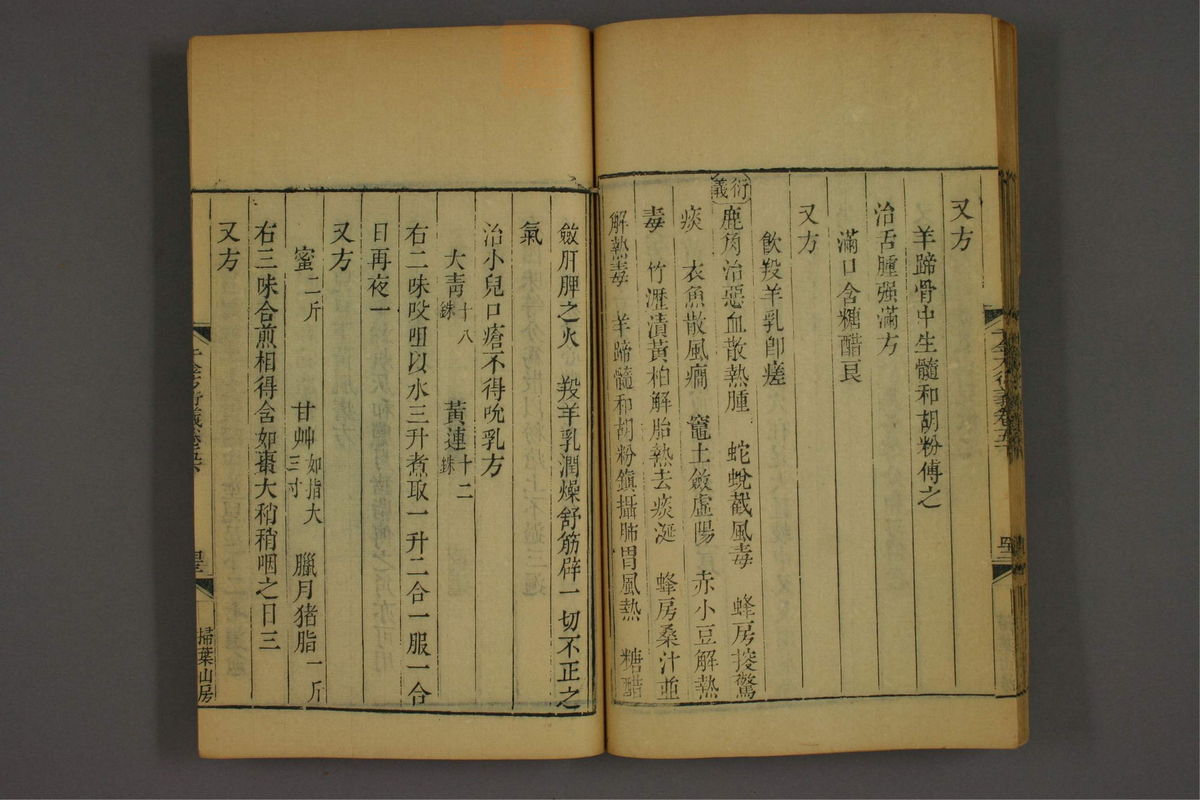 又方
羊蹄骨中生髓和胡粉傅之
治舌腫强滿方
滿口含糖醋良
又方
飲羖羊乳卽瘥
衍義
鹿角治惡血散熱腫 蛇蛻截風毒 蜂房掞驚
痰 衣魚散風癇 竈土斂虛陽 赤小豆解熱
毒 竹瀝漬黃柏解胎熱去痰涎 蜂房桑汁並
解熱毒 羊蹄髓和胡粉鎭攝肺胃風熱 糖醋
斂肝脾之火 羖羊乳潤燥舒筋辟一切不正之
氣
治小兒口瘡不得吮乳方
大靑十八銖 黃連十二銖
右二味㕮咀以水三升煮取一升二合一服一合
日再夜一
又方
蜜二斤 甘艸如指大三寸 臘月猪脂一斤
右三味合煎相得含如棗大稍稍咽之日三
又方
掃葉山房